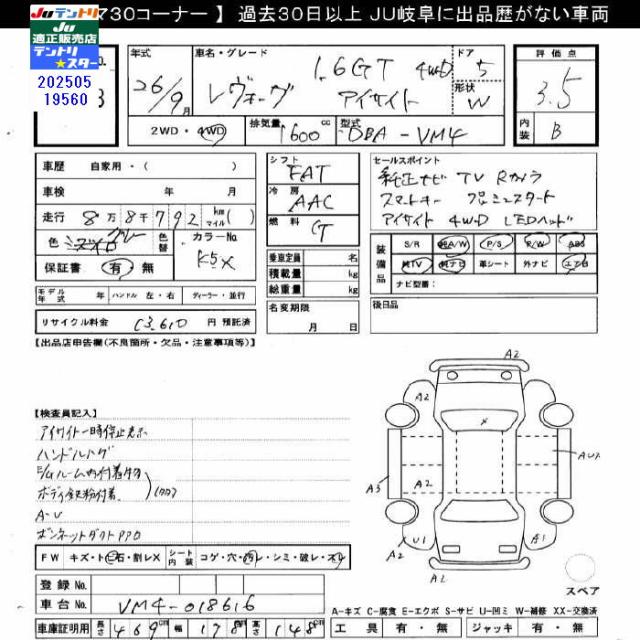 マ30コーナー 】 過去30日以上 JU岐阜に出品歴がない車両
JUテントリ
JU
適正販売店
テントリ
スター
202505
19560
年式
26/9月
車名・グレード
1.6GT 4WD
レヴォーグ アイサイト
ドア
5
形状
W
評価点
3.5
内装
B
2WD・4WD
排気量 1600 cc
型式 DBA-VM4
車歴 自家用・( )
車検 年 月
走行 8万8千792 km マイル( )
色 グレー
色替
カラーNo.
K5X
保証書 有・無
シフト FAT
冷房 AAC
燃料 G
乗車定員 名
積載量 kg
総重量 kg
セールスポイント
純正ナビ TV Rカメラ
スマートキー プッシュスタート
アイサイト 4WD LEDヘッド
装備品
S/R 純A/W P/S R/W ABS
純TV 純ナビ 革シート 外ナビ エアB
ナビ型番:
モデル年式 年 ハンドル 左・右 ディーラー・並行
リサイクル料金 13,610 円 預託済
名変期限
月 日
後日品
【出品店申告欄(不良箇所・欠品・注意事項等)】
【検査員記入】
アイサイト一時停止表示
ハンドルハゲ
E/gルーム内付着有
ボディ鉄粉付着
A-U
ボンネットダクト
FW キズ・ト・石・割レX
シート内装 コゲ・穴・汚レ・シミ・破レ・スレ
登録No.
車台No. VM4-018616
車庫証明用 長さ 469 cm 幅 178 cm 高さ 148 cm
A2
X
A3
A2
AU1
U1
A2
U1
A2
A2
スペア
A-キズ C-腐食 E-エクボ S-サビ U-凹ミ W-補修 XX-交換済
工具 有・無 ジャッキ 有・無